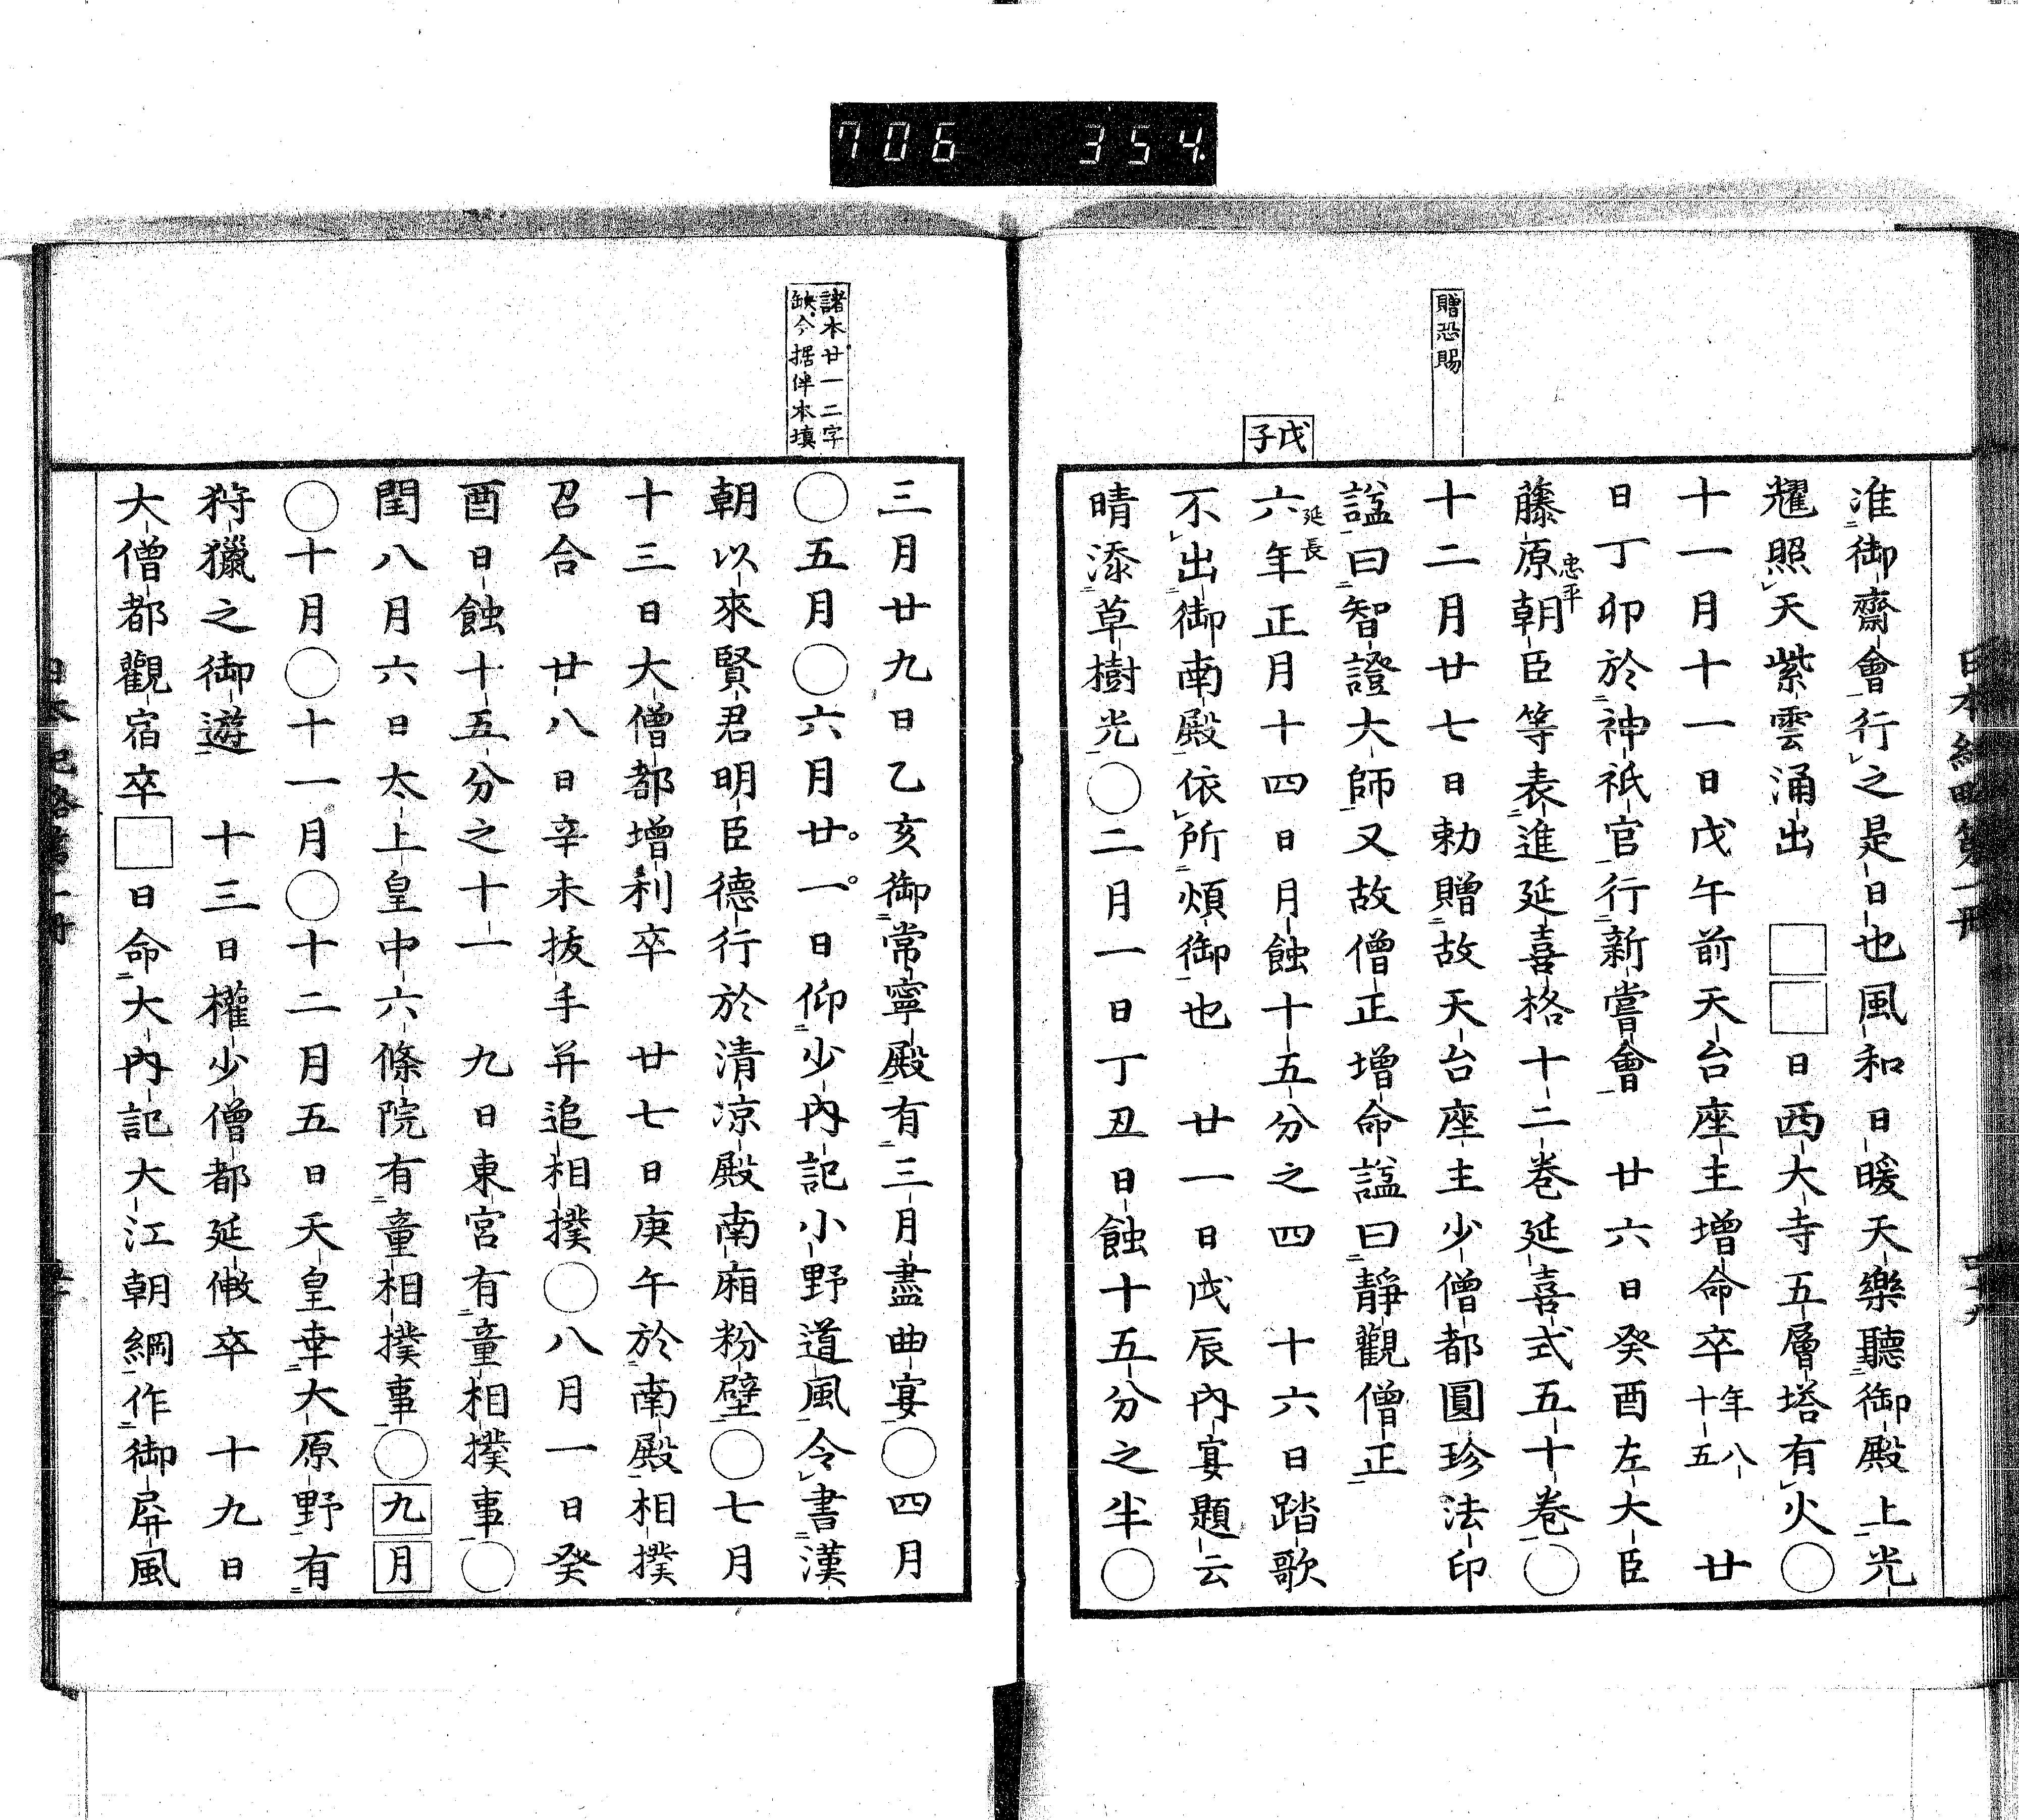 706 354
贈恐賜
戊子
准御齋會行之是日也風和日暖天樂聽御殿上光
耀照天紫雲涌出 □□日西大寺五層塔有火○
十一月十一日戊午前天台座主增命卒年八十五 廿
日丁卯於神祇官行新嘗會 廿六日癸酉左大臣
藤原朝臣忠平等表進延喜格十二卷延喜式五十卷○
十二月廿七日勅贈故天台座主少僧都圓珍法印
謚曰智證大師又故僧正增命謚曰靜觀僧正
延長六年正月十四日月蝕十五分之四 十六日踏歌
不出御南殿依所煩御也 廿一日戊辰內宴題云
晴添草樹光○二月一日丁丑日蝕十五分之半○
諸本廿一二字
缺今据伴本填
三月廿九日乙亥御常寧殿有三月盡曲宴○四月
○五月○六月廿一日仰少內記小野道風令書漢
朝以來賢君明臣德行於清凉殿南廂粉壁○七月
十三日大僧都增利卒 廿七日庚午於南殿相撲
召合 廿八日辛未拔手并追相撲○八月一日癸
酉日蝕十五分之十一 九日東宮有童相撲事○
閏八月六日太上皇中六條院有童相撲事○九月
○十月○十一月○十二月五日天皇幸大原野有
狩獵之御遊 十三日權少僧都延僘卒 十九日
大僧都觀宿卒□日命大內記大江朝綱作御屏風